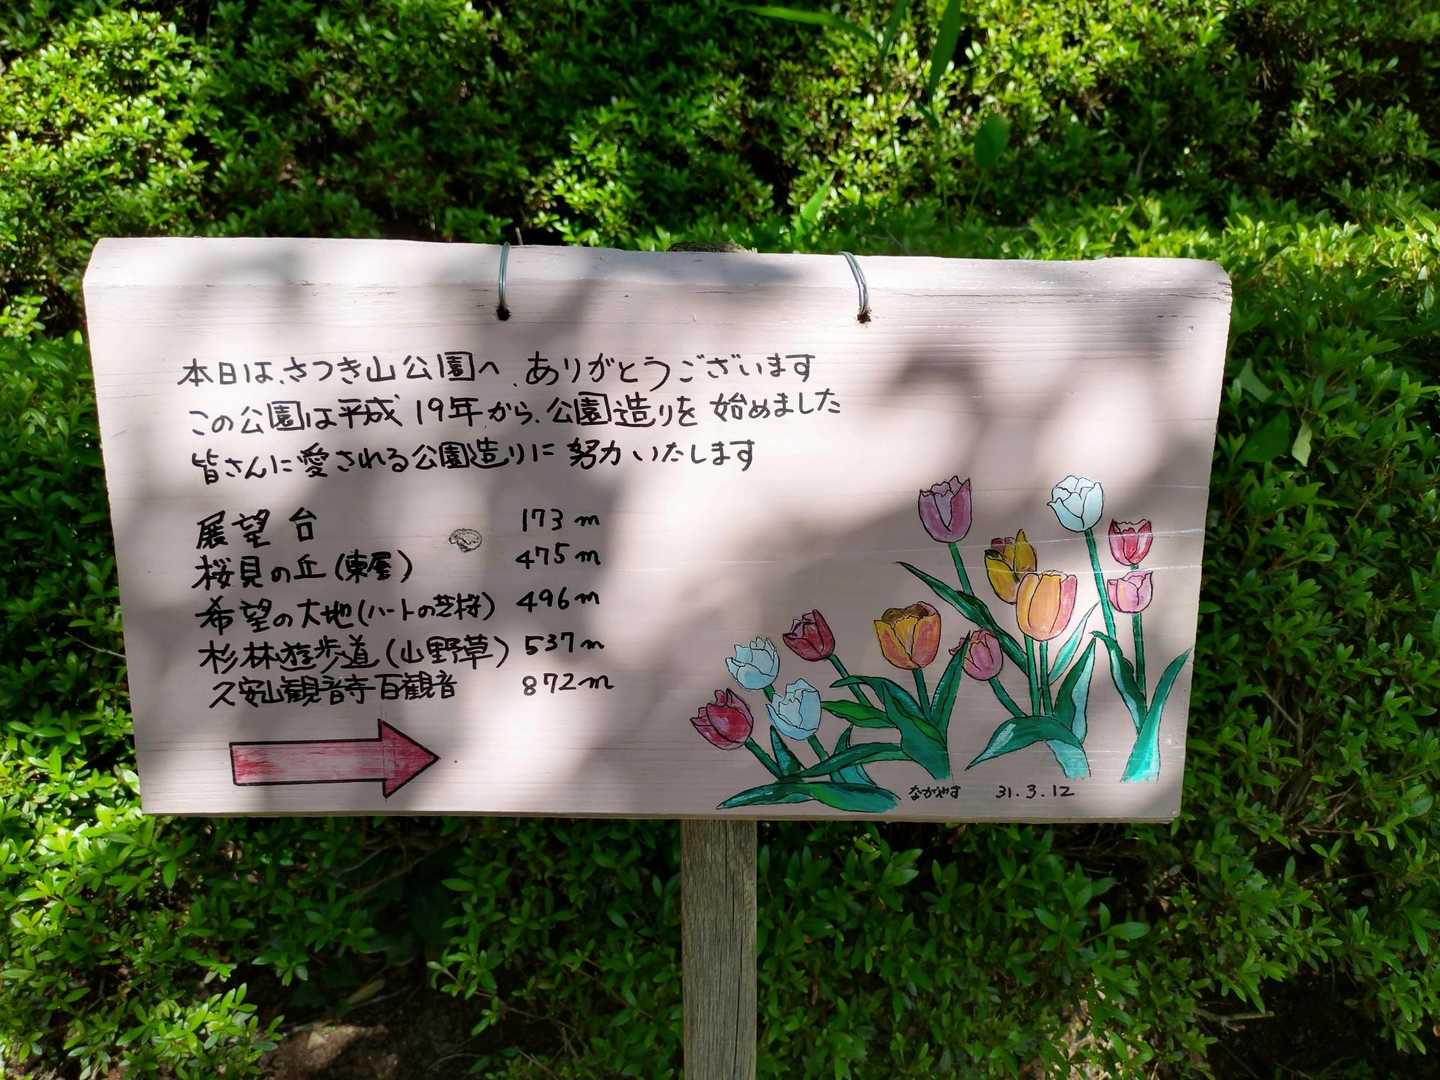 本日は、さつき山公園へ、ありがとうございます
この公園は平成19年から、公園造りを始めました
皆さんに愛される公園造りに努力いたします
展望台 173m
桜見の丘(東屋) 475m
希望の大地(ハートの芝桜) 496m
杉林遊歩道(山野草) 537m
久安山観音寺百観音 872m
ながやす 31.3.12